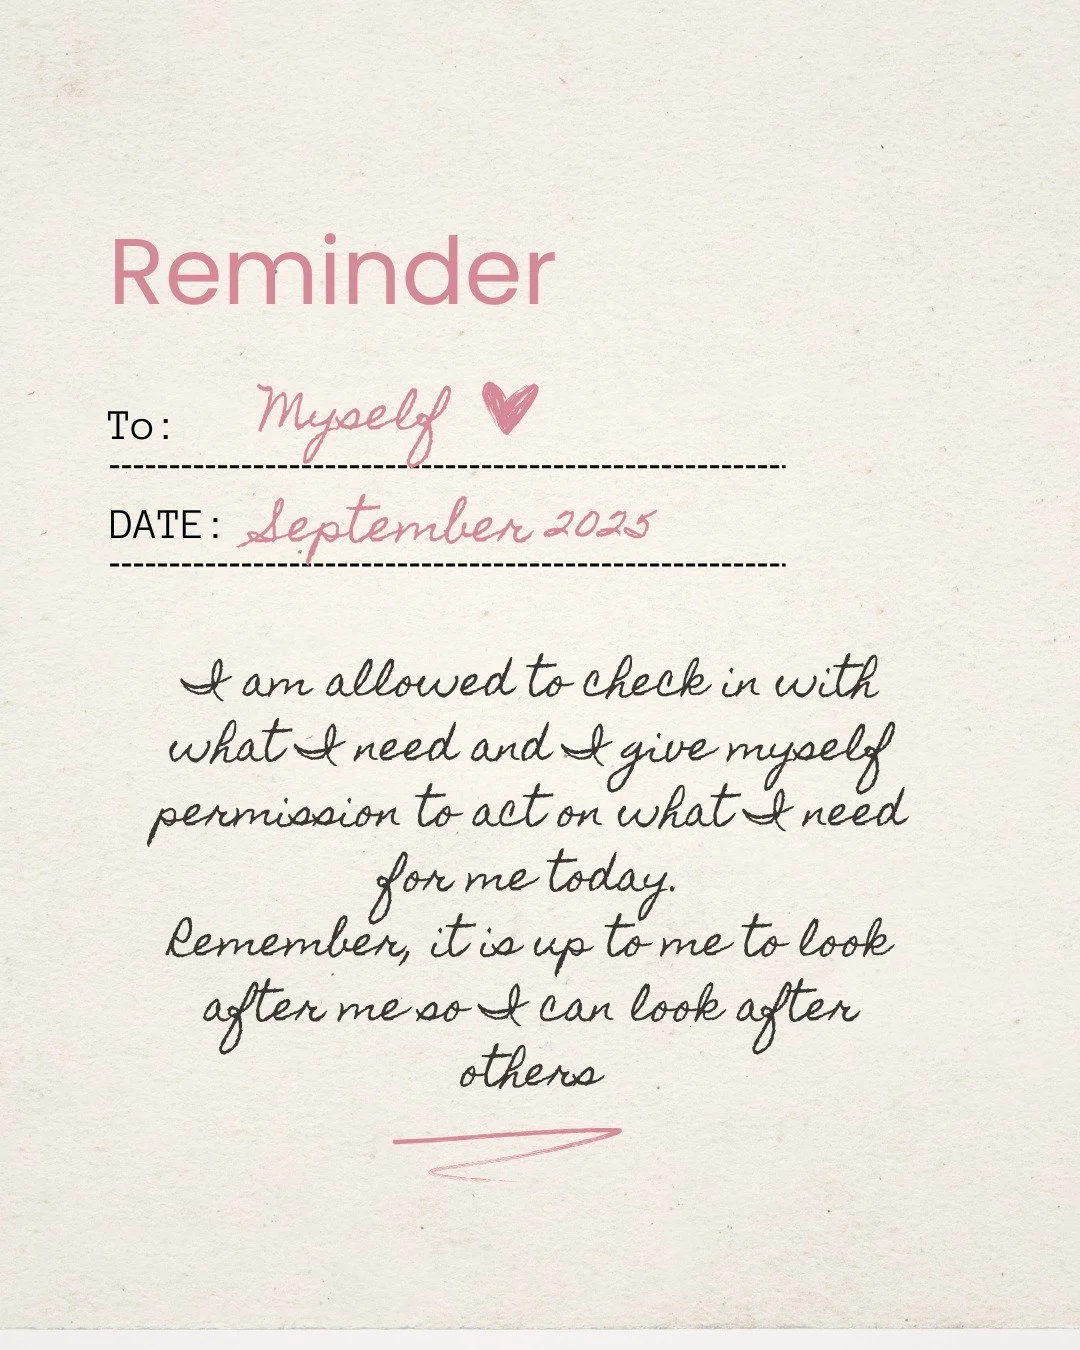 Reminder
To: Myself
DATE: September 2025
I am allowed to check in with
what I need and I give myself
permission to act on what I need
for me today.
Remember, it is up to me to look
after me so I can look after
others